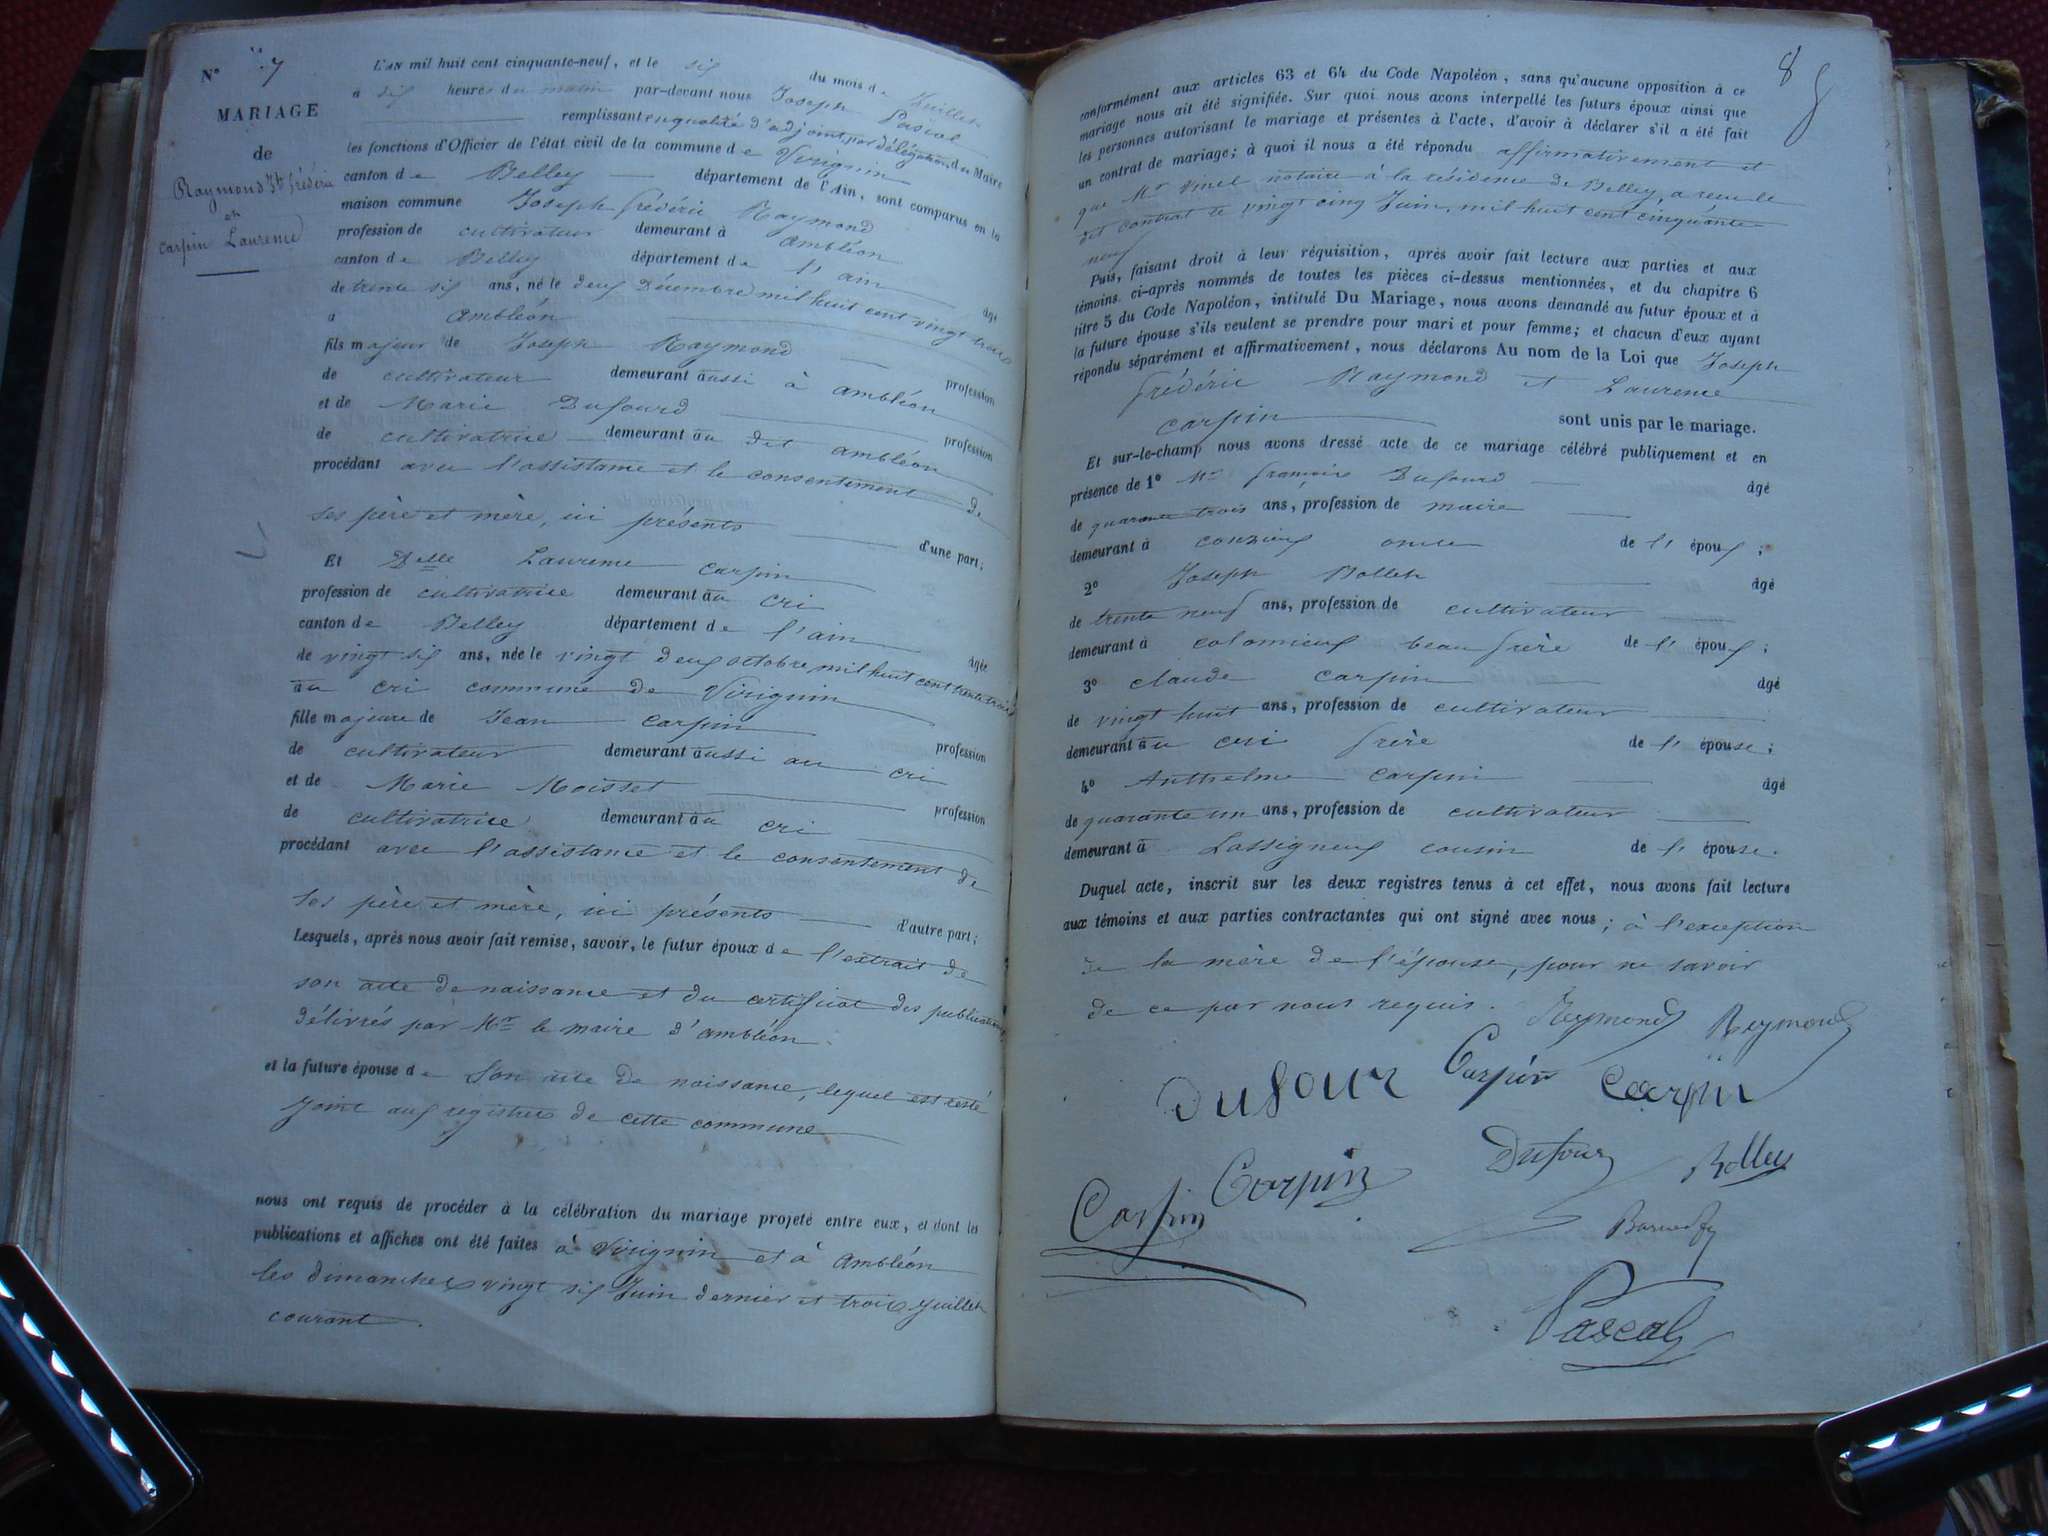 N° 7
MARIAGE
de
Raymond Jh frédéric
et
Carpin Laurence
L'AN mil huit cent cinquante-neuf, et le six du mois de Juillet
à six heures du matin par-devant nous Joseph Pascal
remplissant en qualité d'adjoint, par délégation du Maire
les fonctions d'Officier de l'état civil de la commune de Virignin
canton de Belley département de l'Ain, sont comparus en la
maison commune Joseph frédéric Raymond
profession de cultivateur demeurant à Ambléon
canton de Belley département de l'ain âgé
de trente six ans, né le deux Décembre mil huit cent vingt trois
à Ambléon
fils majeur de Joseph Raymond profession
de cultivateur demeurant aussi à ambléon
et de Marie Dufourd profession
de cultivatrice demeurant au dit ambléon
procédant avec l'assistance et le consentement de
ses père et mère, ici présents d'une part;
Et Delle Laurence Carpin
profession de cultivatrice demeurant au cri
canton de Belley département de l'ain âgée
de vingt six ans, née le vingt deux octobre mil huit cent trente trois
au cri commune de Virignin
fille majeure de Jean Carpin profession
de cultivateur demeurant aussi au cri
et de Marie Moisset profession
de cultivatrice demeurant au cri
procédant avec l'assistance et le consentement de
ses père et mère, ici présents d'autre part;
Lesquels, après nous avoir fait remise, savoir, le futur époux de l'extrait de
son acte de naissance et du certificat des publications
délivrés par Mr le maire d'ambléon.
et la future épouse de Son acte de naissance, lequel est resté
joint aux registres de cette commune
nous ont requis de procéder à la célébration du mariage projeté entre eux, et dont les
publications et affiches ont été faites à Virignin et à Ambléon
les dimanches vingt six Juin dernier et trois Juillet
courant.
8
conformément aux articles 63 et 64 du Code Napoléon, sans qu'aucune opposition à ce
mariage nous ait été signifiée. Sur quoi nous avons interpellé les futurs époux ainsi que
les personnes autorisant le mariage et présentes à l'acte, d'avoir à déclarer s'il a été fait
un contrat de mariage; à quoi il nous a été répondu affirmativement et
que Mr Vinel notaire à la résidence de Belley, a reçu le
dit contrat le vingt cinq Juin, mil huit cent cinquante
neuf
Puis, faisant droit à leur réquisition, après avoir fait lecture aux parties et aux
témoins ci-après nommés de toutes les pièces ci-dessus mentionnées, et du chapitre 6
titre 5 du Code Napoléon, intitulé Du Mariage, nous avons demandé au futur époux et à
la future épouse s'ils veulent se prendre pour mari et pour femme; et chacun d'eux ayant
répondu séparément et affirmativement, nous déclarons Au nom de la Loi que Joseph
frédéric Raymond et Laurence
Carpin sont unis par le mariage.
Et sur-le-champ nous avons dressé acte de ce mariage célébré publiquement et en
présence de 1° Mr françois Dufourd âgé
de quarante trois ans, profession de maire
demeurant à conzieux oncle de l'époux;
2° Joseph Bollet âgé
de trente neuf ans, profession de cultivateur
demeurant à colomieux beau frère de l'époux;
3° claude Carpin âgé
de vingt huit ans, profession de cultivateur
demeurant au cri frère de l'épouse;
4° Anthelme Carpin âgé
de quarante un ans, profession de cultivateur
demeurant à Lassigneux cousin de l'épouse.
Duquel acte, inscrit sur les deux registres tenus à cet effet, nous avons fait lecture
aux témoins et aux parties contractantes qui ont signé avec nous; à l'exception
de la mère de l'épouse, pour ne savoir
de ce par nous requis. Reymond Reymond
Dufour Carpin Carpin
Carpin Carpin Dufour Bollet
Pascal